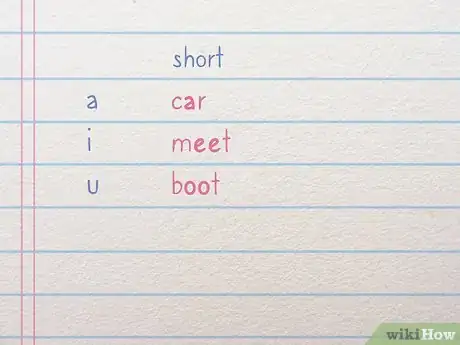 short
a car
i meet
u boot
wikiHow